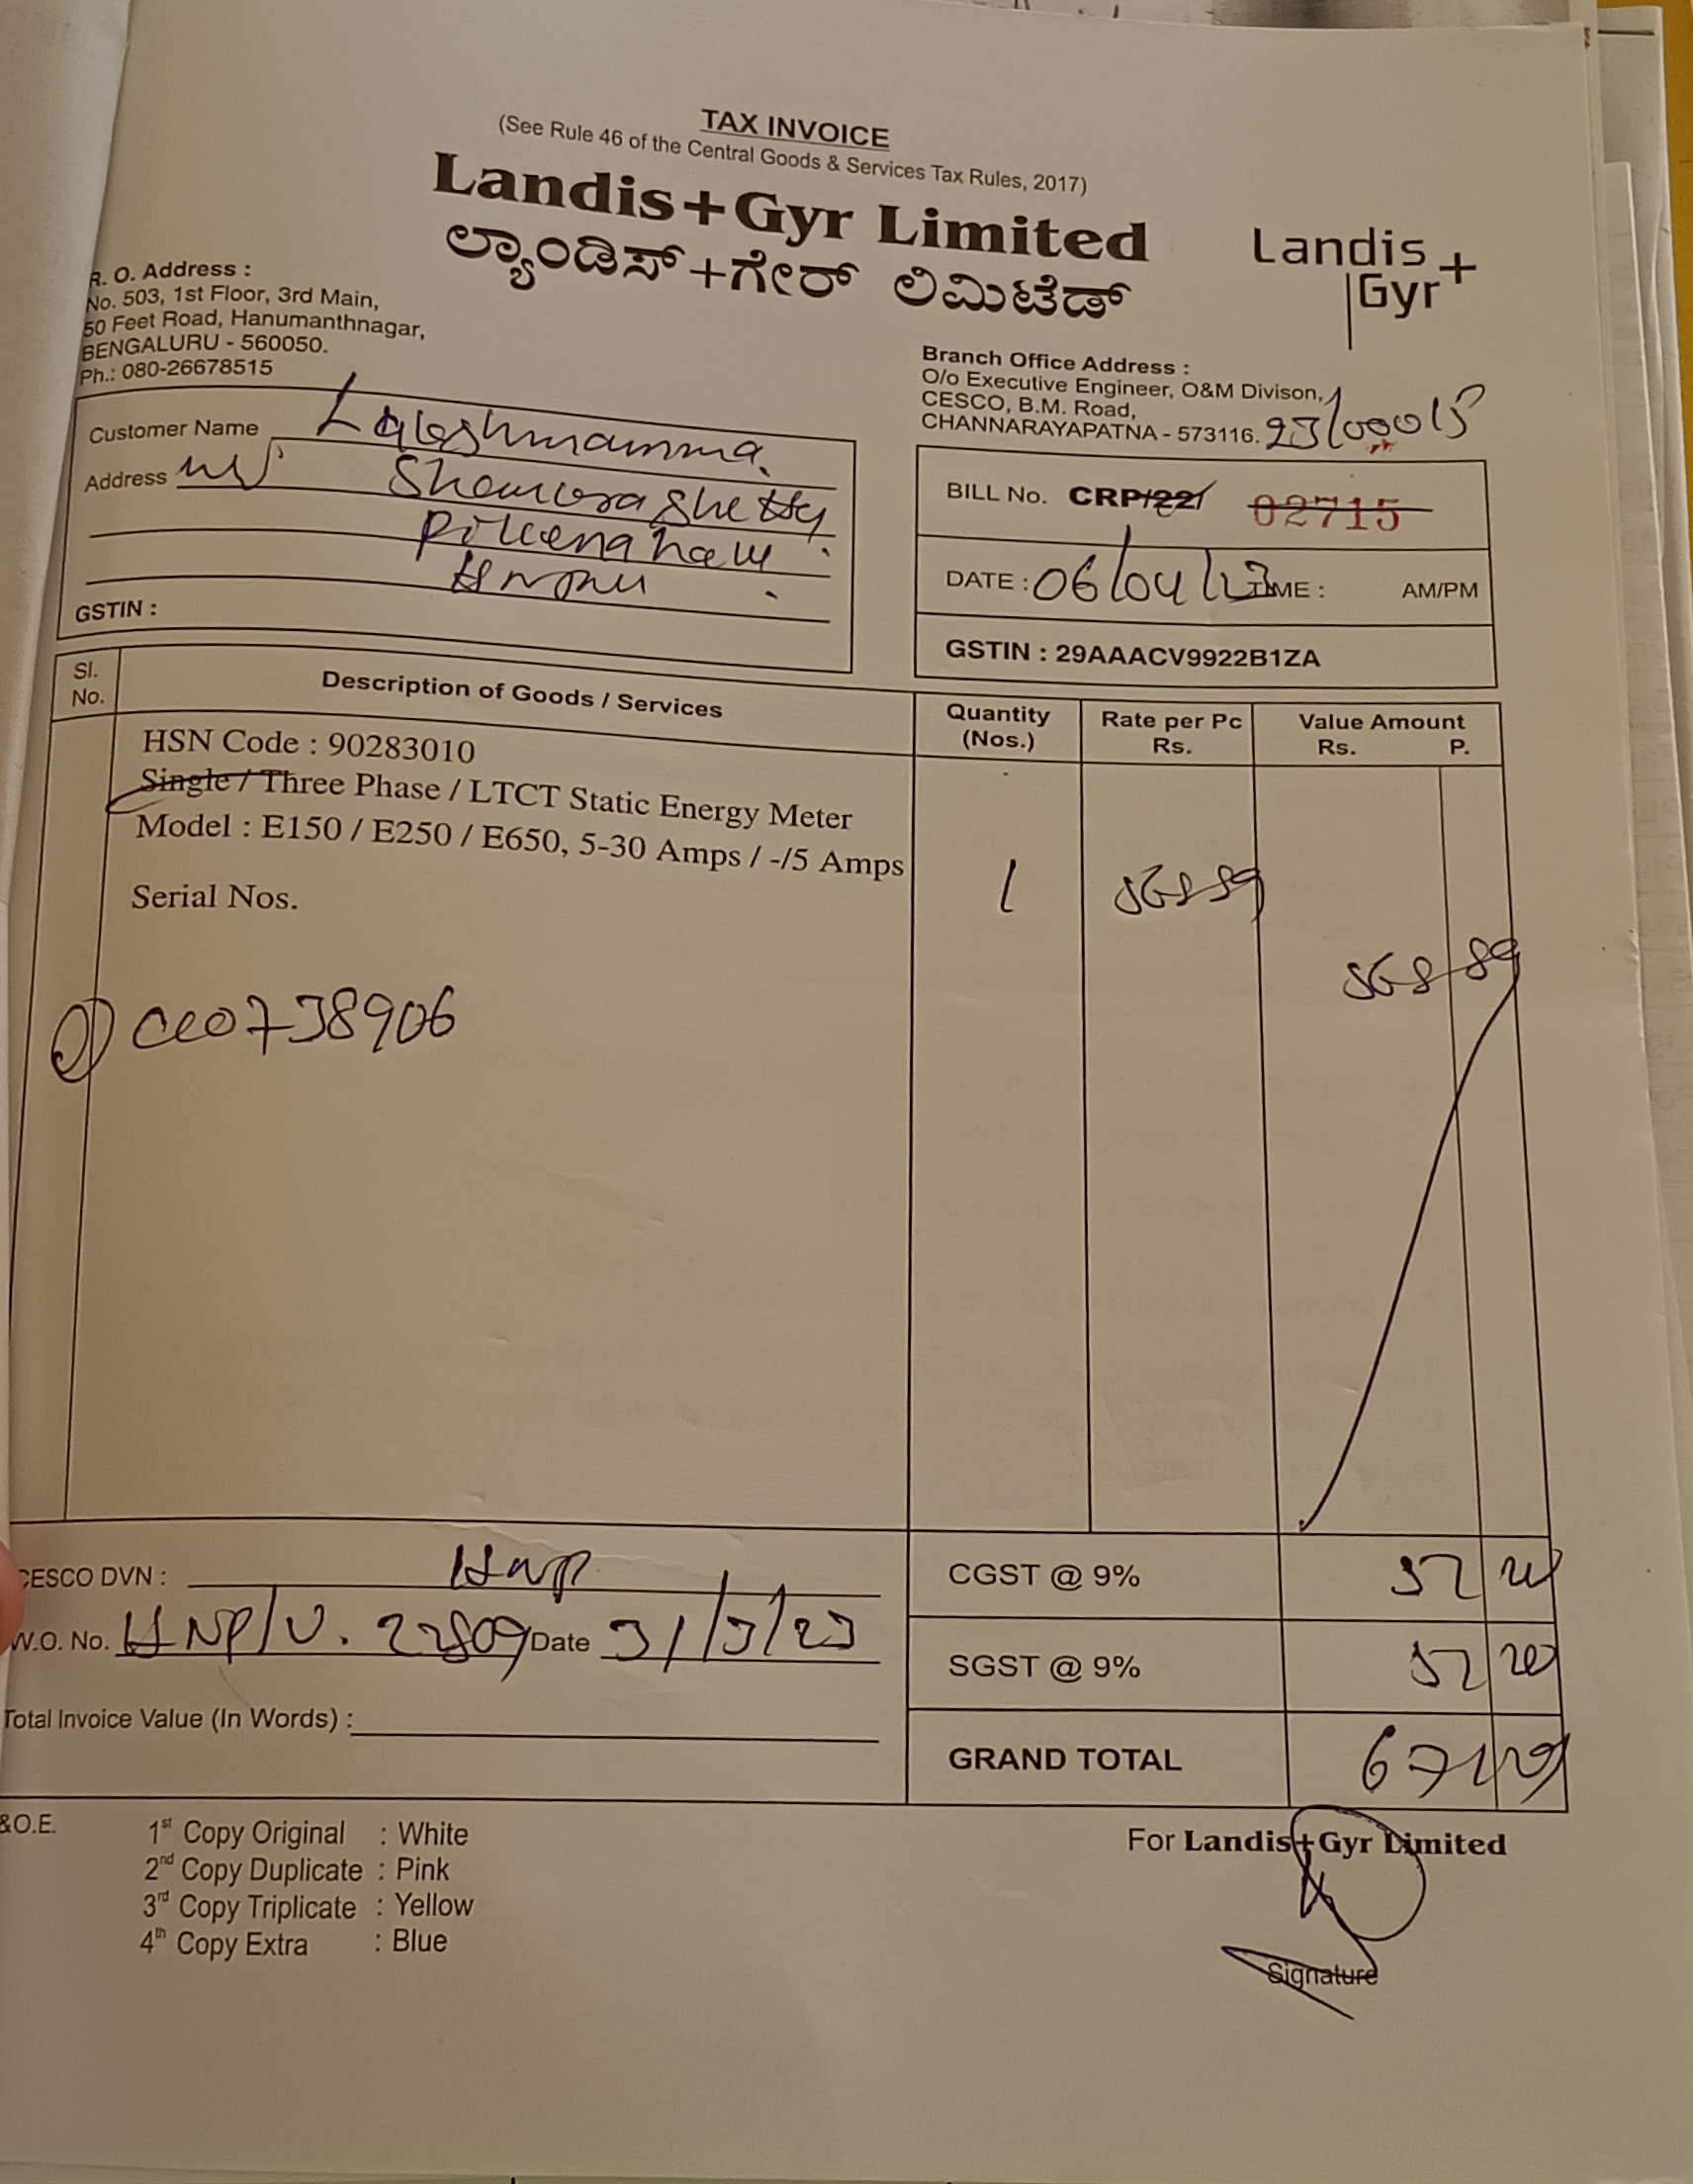 TAX INVOICE
(See Rule 46 of the Central Goods & Services Tax Rules, 2017)
Landis+Gyr Limited
ಲ್ಯಾಂಡಿಸ್+ಗೇರ್ ಲಿಮಿಟೆಡ್
Landis
Gyr+
R. O. Address :
No. 503, 1st Floor, 3rd Main,
50 Feet Road, Hanumanthnagar,
BENGALURU - 560050.
Ph.: 080-26678515
Branch Office Address :
O/o Executive Engineer, O&M Divison,
CESCO, B.M. Road,
CHANNARAYAPATNA - 573116.
Customer Name
Address
GSTIN :
BILL No. CRP/22/ 02715
DATE : 06/04/23 TIME : AM/PM
GSTIN : 29AAACV9922B1ZA
Sl. No. Description of Goods / Services Quantity (Nos.) Rate per Pc Rs. Value Amount Rs. P.
HSN Code : 90283010
Single / Three Phase / LTCT Static Energy Meter
Model : E150 / E250 / E650, 5-30 Amps / -/5 Amps
Serial Nos. 1 568 89
568 89
CESCO DVN : HNP CGST @ 9%
W.O. No. HNP/ Date 31/3/23 SGST @ 9%
Total Invoice Value (In Words) : GRAND TOTAL 671
&O.E.
1st Copy Original : White
2nd Copy Duplicate : Pink
3rd Copy Triplicate : Yellow
4th Copy Extra : Blue
For Landis+Gyr Limited
Signature